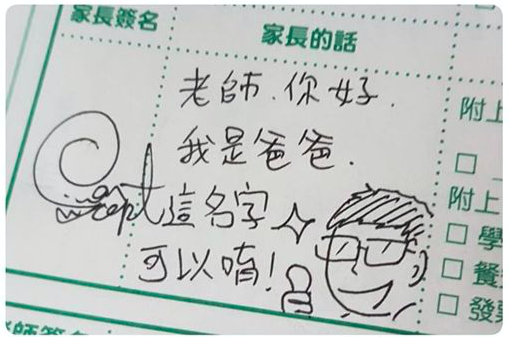 家長簽名
家長的話
老師.你好.
我是爸爸.
這名字
可以唷!
附上
附上
學
餐
發票
師簽名